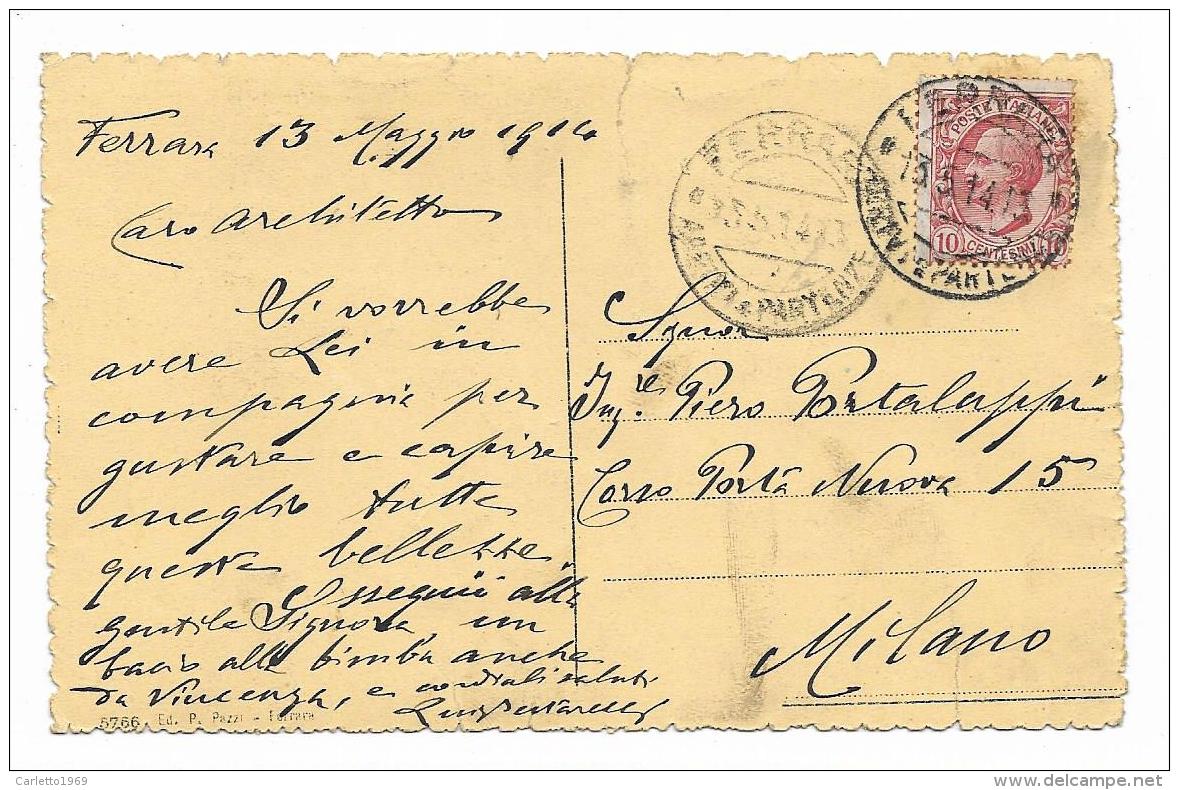 Ferrara 13 Maggio 1914
Caro Architetto
Si vorrebbe
avere Lei in
compagnia per
gustare e capire
meglio tutte
queste bellezze.
Ossequii alla
gentile Signora, un
bacio alla bimba anche
da Vincenza, e cordiali saluti
Luigi
5766. Ed. P. Pazzi - Ferrara
FERRARA
13.5.14.13
ARRIVI E PARTENZE
POSTE ITALIANE
10 CENTESIMI 10
FERRARA
13.5.14.13
ARRIVI E PARTENZE
Signor
Ing.re Piero Portaluppi
Corso Porta Nuova 15
Milano
Carletto1969
delcampe.net